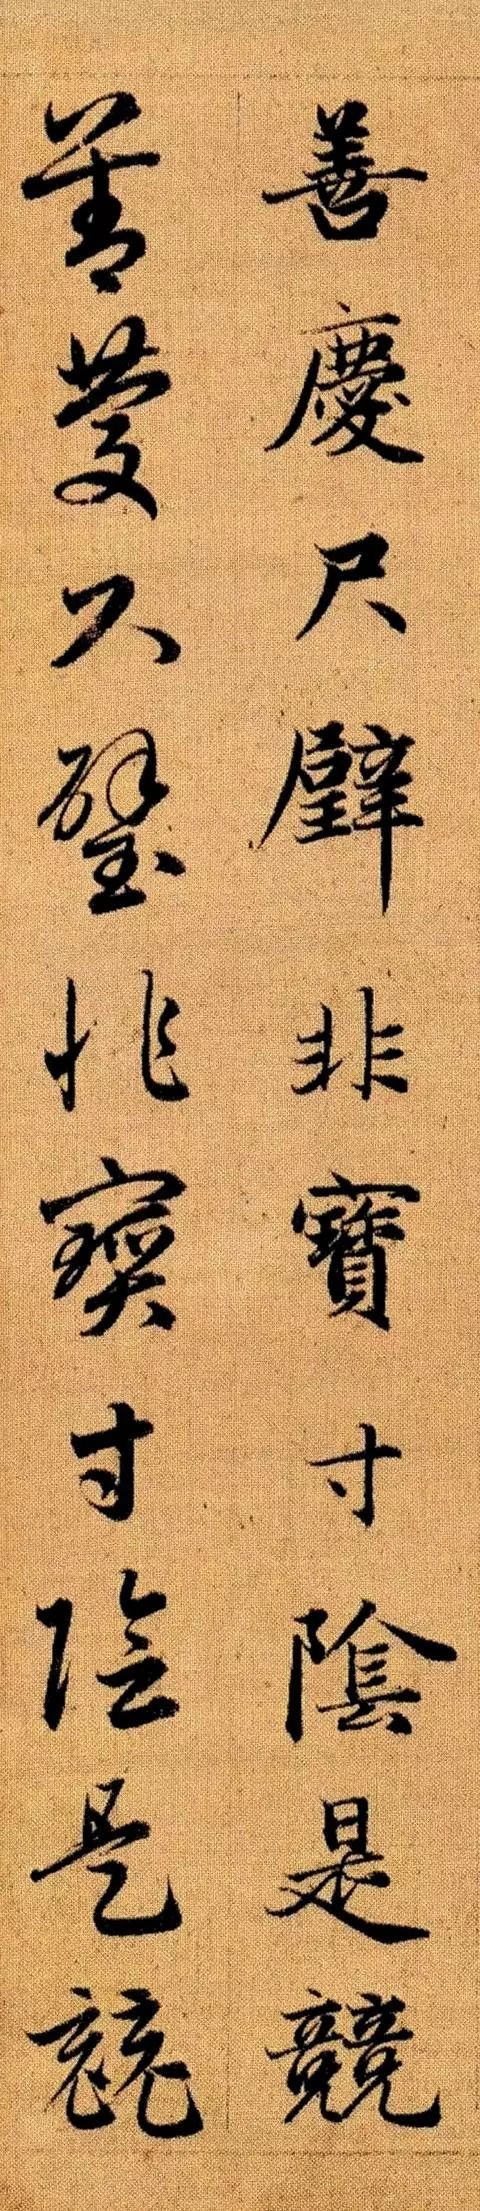 善慶尺璧非寶寸陰是競
善慶尺璧非寶寸陰是競